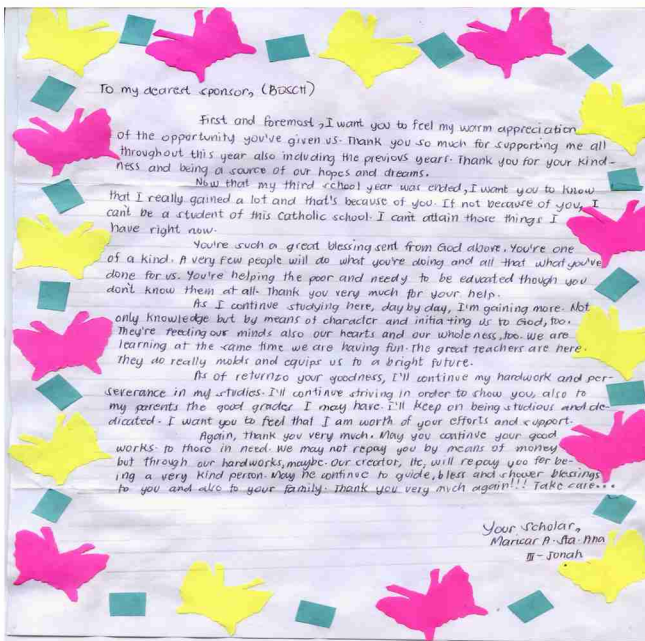 To my dearest sponsor, (BOSCH)
First and foremost, I want you to feel my warm appreciation
of the opportunity you've given us. Thank you so much for supporting me all
throughout this year also including the previous years. Thank you for your kind-
ness and being a source of our hopes and dreams.
Now that my third school year was ended, I want you to know
that I really gained a lot and that's because of you. If not because of you, I
can't be a student of this Catholic school. I can't attain those things I
have right now.
You're such a great blessing sent from God above. You're one
of a kind. A very few people will do what you're doing and all that what you've
done for us. You're helping the poor and needy to be educated though you
don't know them at all. Thank you very much for your help.
As I continue studying here, day by day, I'm gaining more. Not
only knowledge but by means of character and initiating us to God, too.
They're feeding our minds also our hearts and our wholeness, too. We are
learning at the same time we are having fun. The great teachers are here.
They do really molds and equips us to a bright future.
As of return to your goodness, I'll continue my hardwork and per-
severance in my studies. I'll continue striving in order to show you, also to
my parents the good grades I may have. I'll keep on being studious and de-
dicated. I want you to feel that I am worth of your efforts and support.
Again, thank you very much. May you continue your good
works to those in need. We may not repay you by means of money
but through our hardworks, maybe. Our creator, He, will repay you for be-
ing a very kind person. May he continue to guide, bless and shower blessings
to you and also to your family. Thank you very much again!!! Take care...
Your scholar,
Maricar A. Sta. Ana
III - Jonah